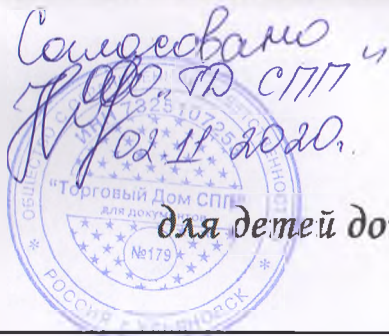 Согласовано
ООО "ТД СПП"
02.11.2020г.
"Торговый Дом СПП"
для документов
№179
РОССИЯ г. УЛЬЯНОВСК
для детей до